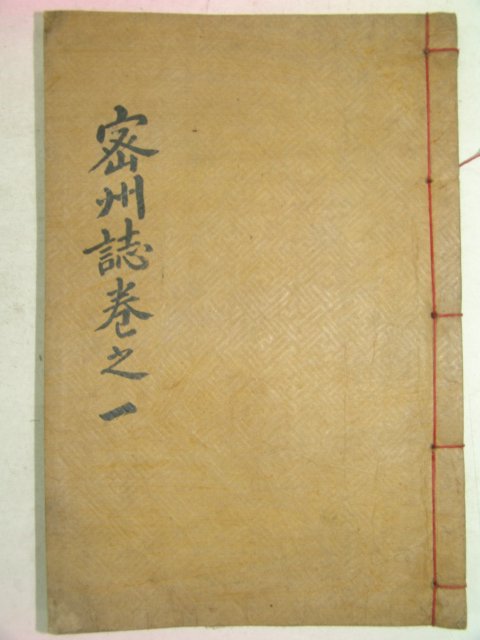 密州誌卷之一